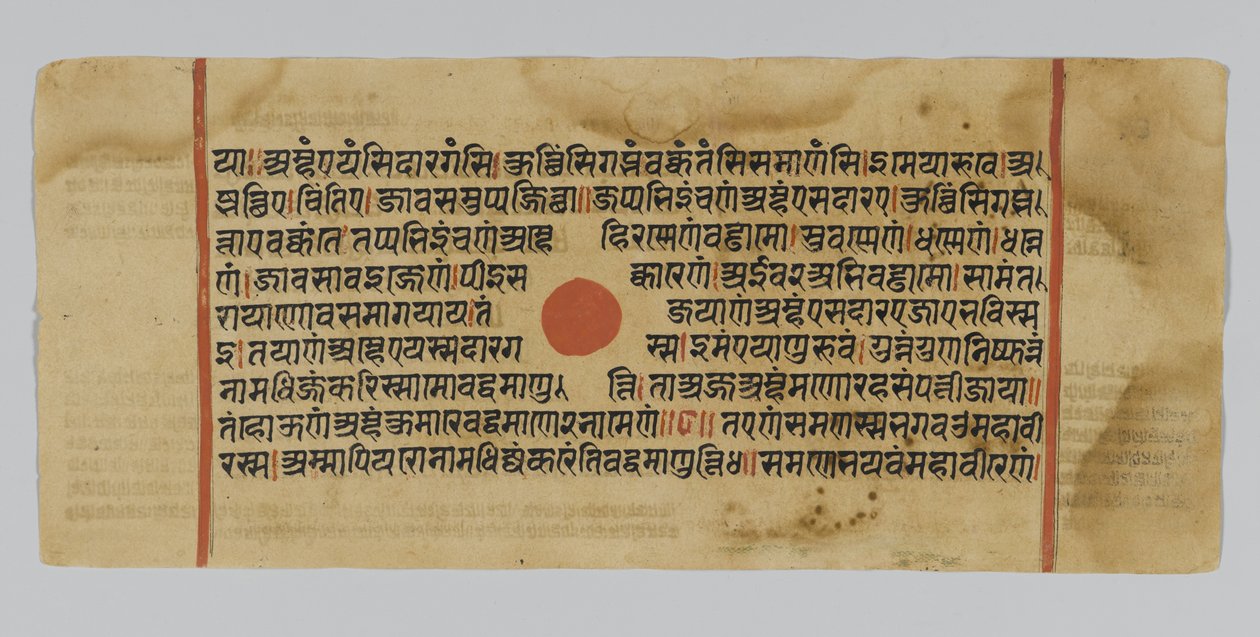 या॥अम्हंएयंसिदारगंसि।कुच्छिंसिगब्भंवक्कंतंसिसमाणंसि।इमेयारूवे।अ
ब्भत्थिए।चिंतिए।जावसमुप्पज्जित्था॥जप्पभिइंचणंअम्हंएसदारए।कुच्छिंसिगब्भ
त्ताएवक्कंते।तप्पभिइंचणंअम्हे हिरण्णेणंवड्ढामो।सुवण्णेणं।धण्णेणं।धन्ने
णं।जावसावइज्जेणं।पीइस क्कारेणं।अईव२अभिवड्ढामो।सामंत
रायाणोवसमागयाय।तं जयाणंअम्हंएसदारएजाएभविस्स
इ।तयाणंअम्हेएयस्सदारग स्स।इमंएयाणुरूवं।गुन्नंगुणनिप्फन्नं
नामधिज्जंकरिस्सामोवद्धमाणु त्ति।ताअज्जअम्हंमणोरहसंपत्तीजाया॥
तंहोऊणंअम्हंकुमारेवद्धमाणे२नामेणं॥छ॥तएणंसमणस्सभगवओमहावी
रस्स।अम्मापियरोनामधिज्जंकरेंतिवद्धमाणुत्ति॥समणेभयवंमहावीरेणं।